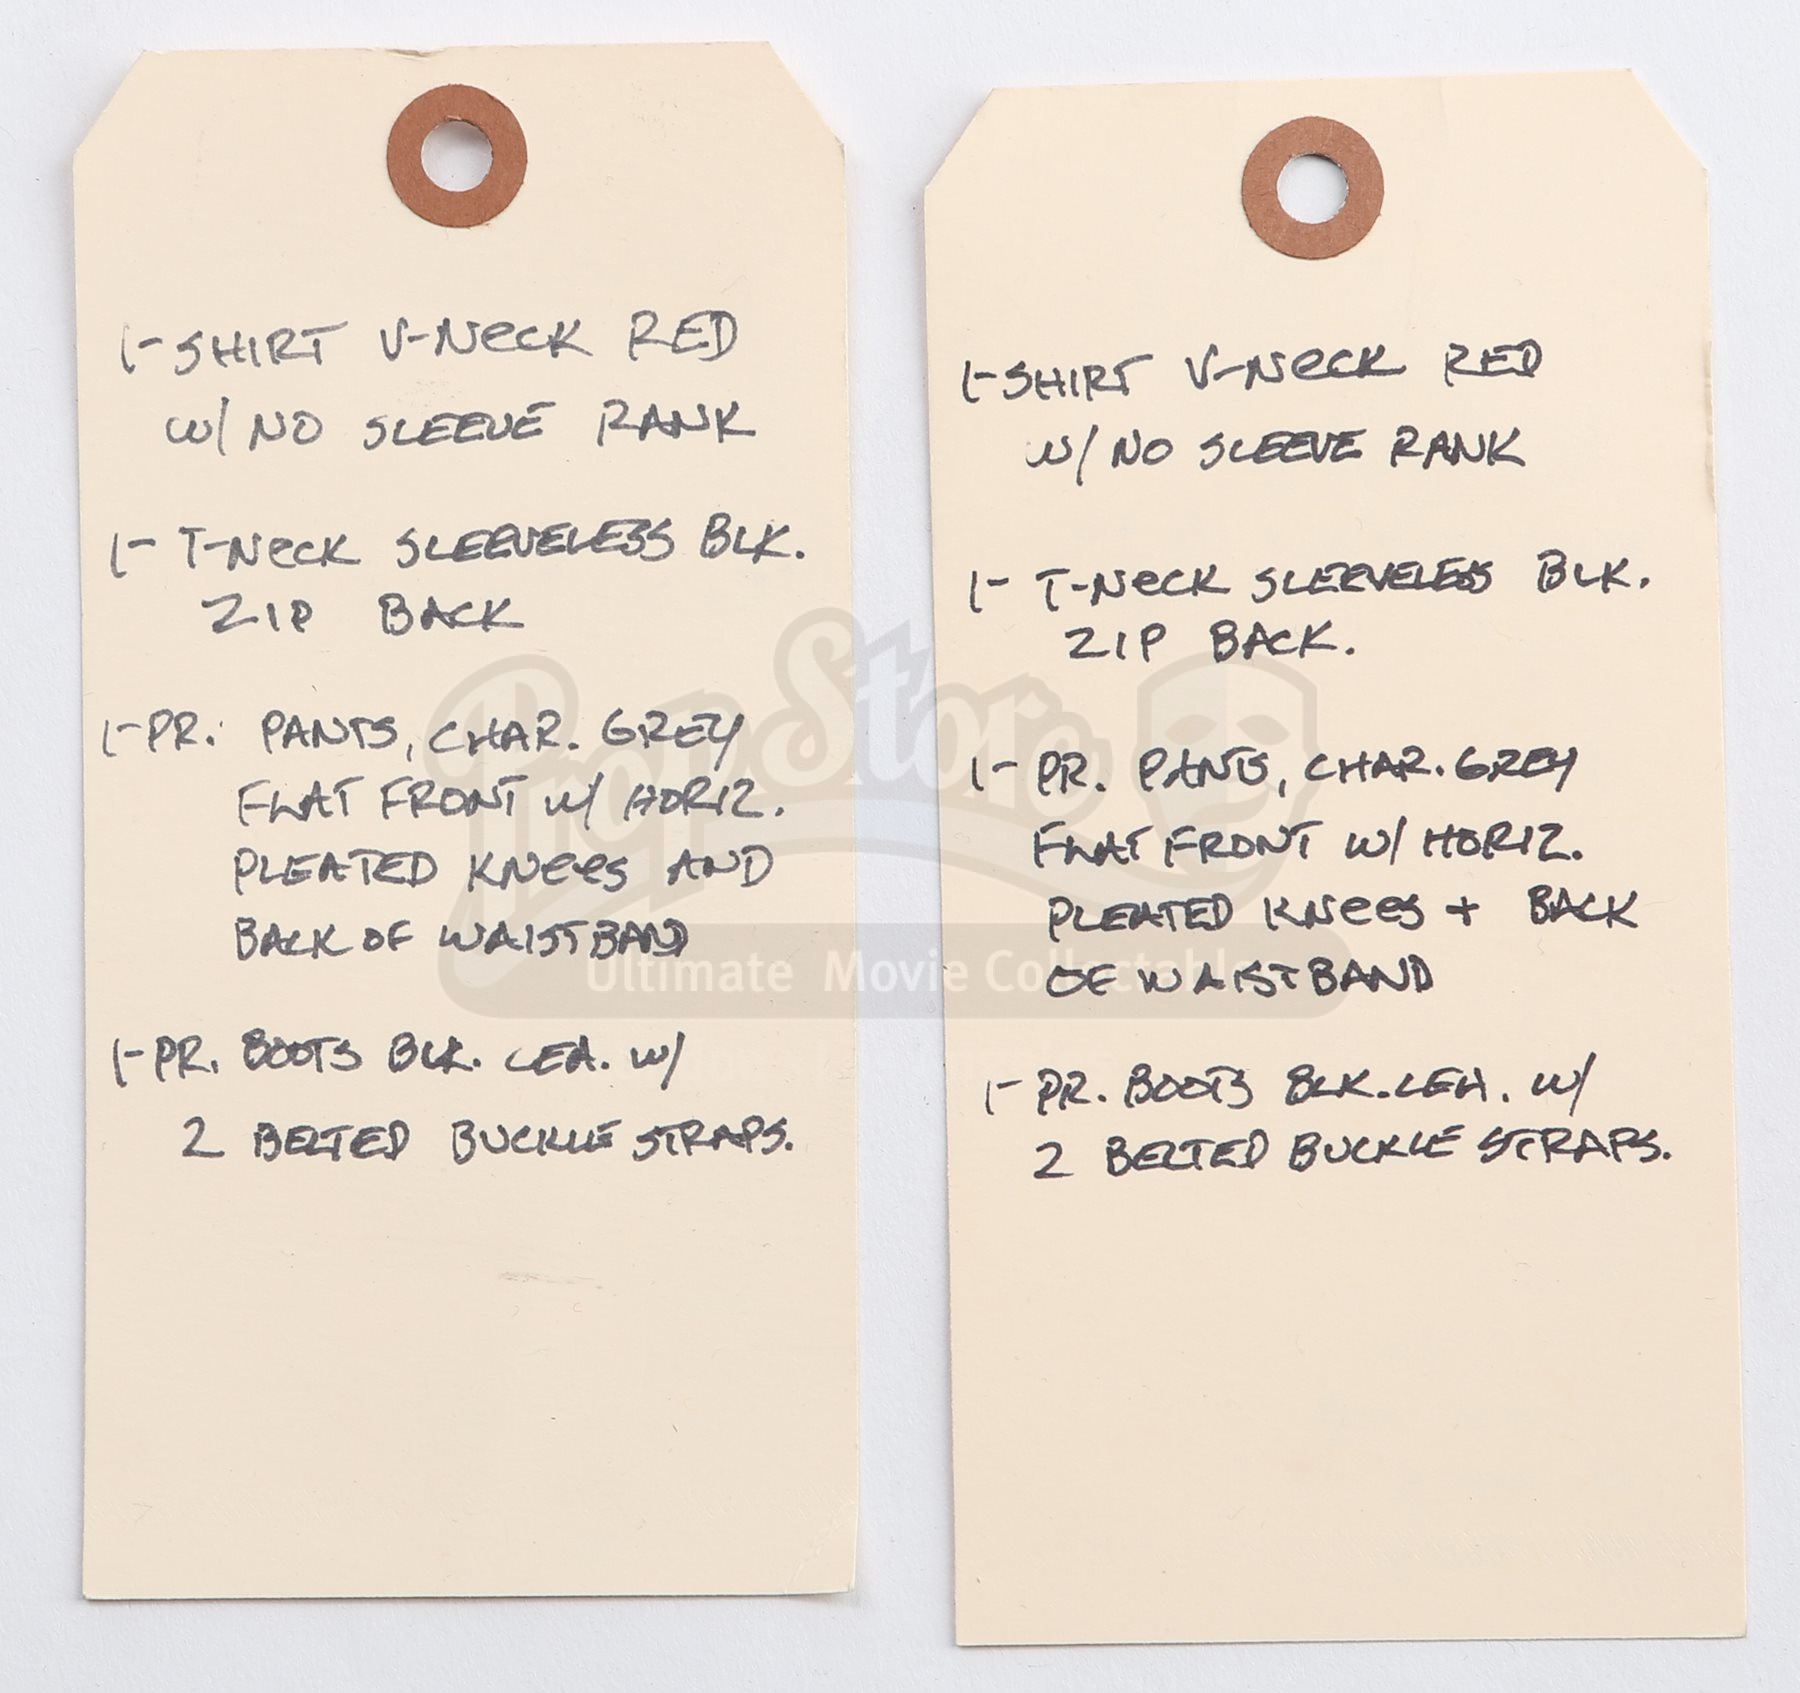 1- SHIRT V-NECK RED
W/ NO SLEEVE RANK
1- T-NECK SLEEVELESS BLK.
ZIP BACK
1- PR. PANTS, CHAR. GREY
FLAT FRONT W/ HORIZ.
PLEATED KNEES AND
BACK OF WAISTBAND
1- PR. BOOTS BLK. LEA. W/
2 BELTED BUCKLE STRAPS.
1- SHIRT V-NECK RED
W/ NO SLEEVE RANK
1- T-NECK SLEEVELESS BLK.
ZIP BACK.
1- PR. PANTS, CHAR. GREY
FLAT FRONT W/ HORIZ.
PLEATED KNEES + BACK
OF WAISTBAND
1- PR. BOOTS BLK. LEA. W/
2 BELTED BUCKLE STRAPS.
Prop Store
Ultimate Movie Collectables